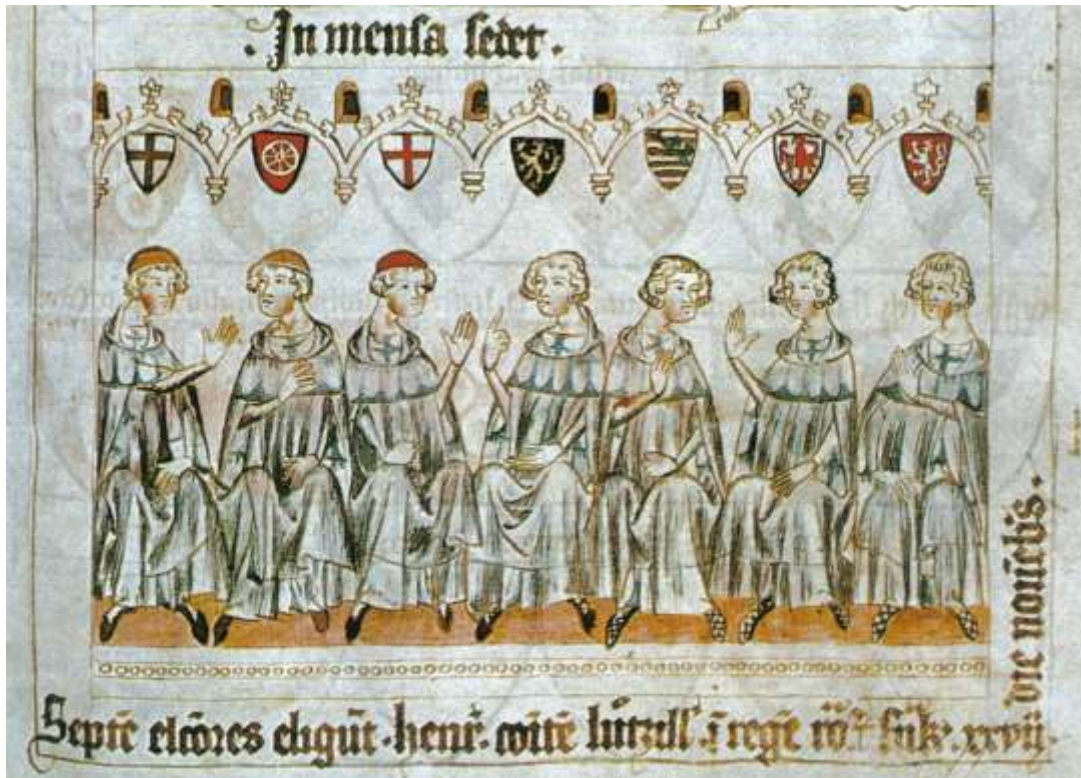 · In mensa sedet ·
Septē elc̄ores eligūt · henr̄ · coītē lutzill' ī regē ro
xxvii ·
die novēbis ·